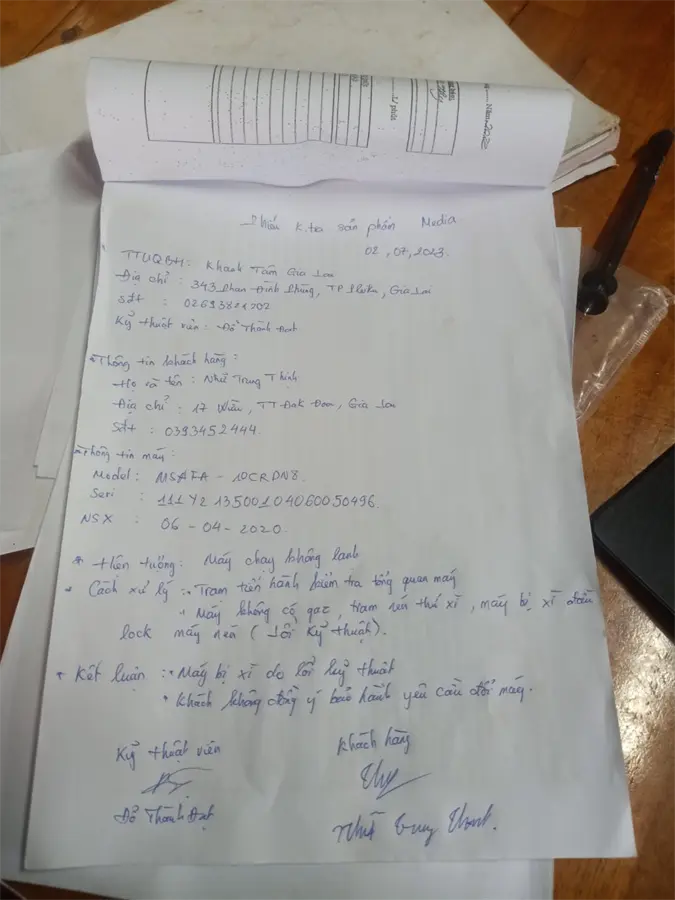 Phiếu K.tra sản phẩm Media
02, 07, 2023.
TTUQBH: Khanh Tâm Gia Lai
Địa chỉ : 343 Phan Đình Phùng, TP Pleiku, Gia Lai
Sđt : 02693821202
Kỹ thuật viên : Đỗ Thành Đạt
* Thông tin khách hàng :
Họ và tên : Như Trung Thịnh
Địa chỉ : 17 Wừu, TT Đak Đoa, Gia Lai
Sđt : 0393452444.
* Thông tin máy :
Model : MSAFA - 10CRDN8.
Seri : 111Y2 135001 04060050496.
NSX : 06 - 04 - 2020.
* Hiên tường : Máy chạy không lạnh
* Cách xử lý : • Trạm tiến hành kiểm tra tổng quan máy
• Máy không có gaz, trạm nén thử xì, máy bị xì đầu
lock máy nén (Lỗi Kỹ thuật).
* Kết luận : • Máy bị xì do lỗi kỹ thuật
• Khách không đồng ý bảo hành yêu cầu đổi máy.
Kỹ thuật viên Khách hàng
Đỗ Thành Đạt